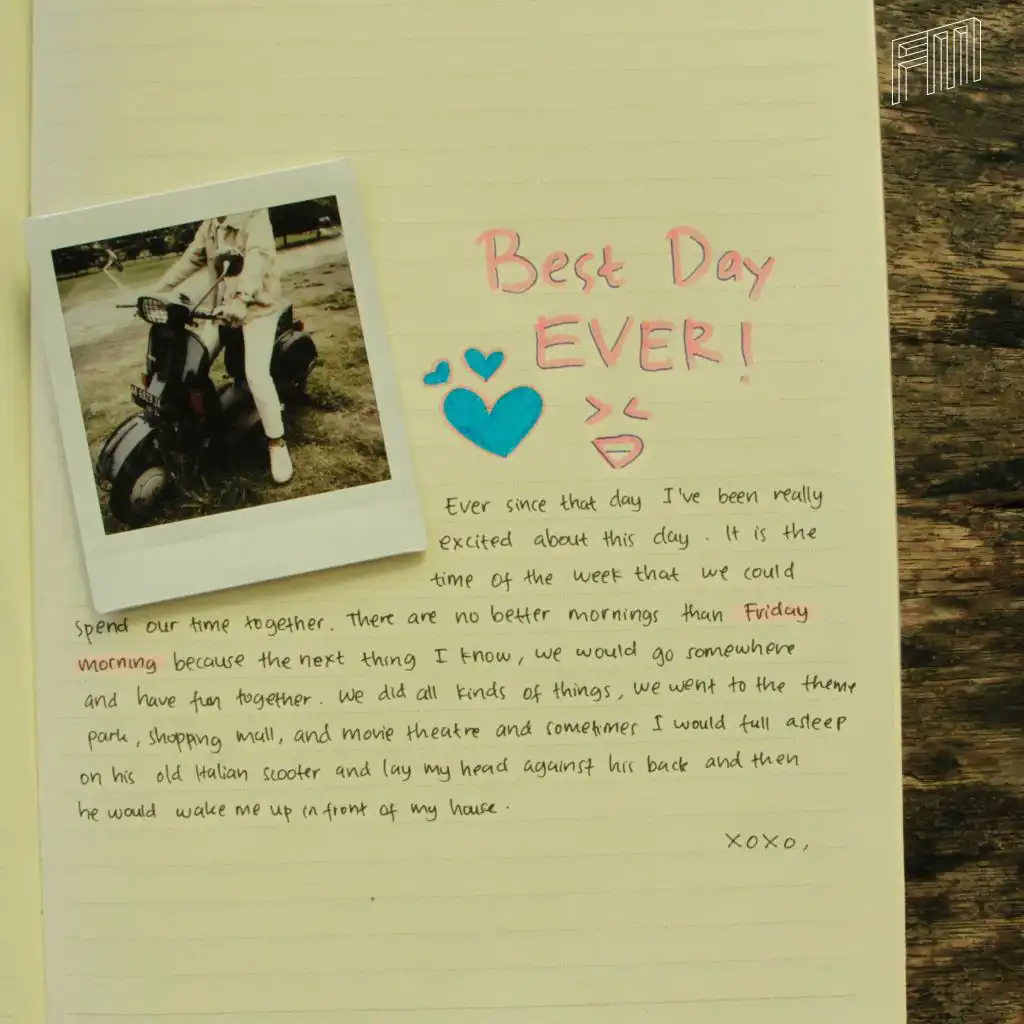 FM
Best Day
EVER!
Ever since that day I've been really
excited about this day. It is the
time of the week that we could
spend our time together. There are no better mornings than Friday
morning because the next thing I know, we would go somewhere
and have fun together. We did all kinds of things, we went to the theme
park, shopping mall, and movie theatre and sometimes I would fall asleep
on his old Italian scooter and lay my head against his back and then
he would wake me up in front of my house.
xoxo,